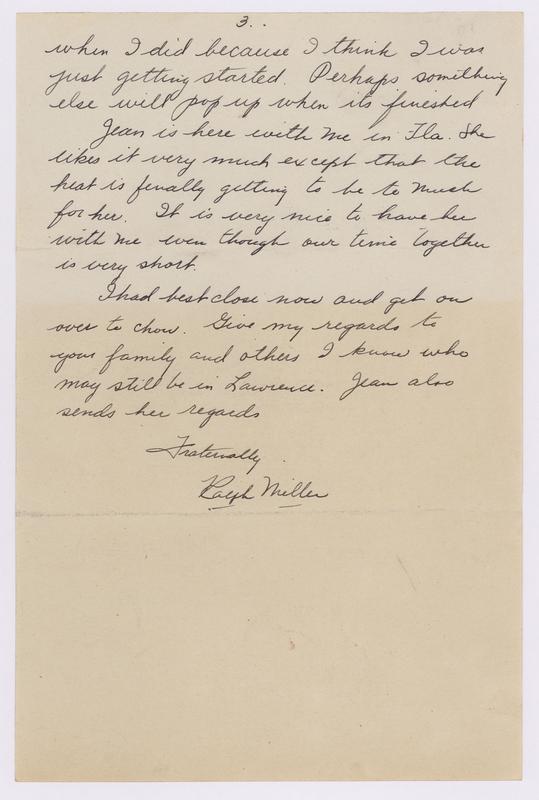 3..
when I did because I think I was
just getting started. Perhaps something
else will pop up when its fineshed
Jean is here with me in Fla. She
likes it very much except that the
heat is fenally getting to be to much
for her. It is very nice to have her
with me even though our time together
is very short.
I had best close now and get on
over to chow. Give my regards to
your family and others I know who
may still be in Lawrence. Jean also
sends her regards
Fraternally.
Ralph Miller